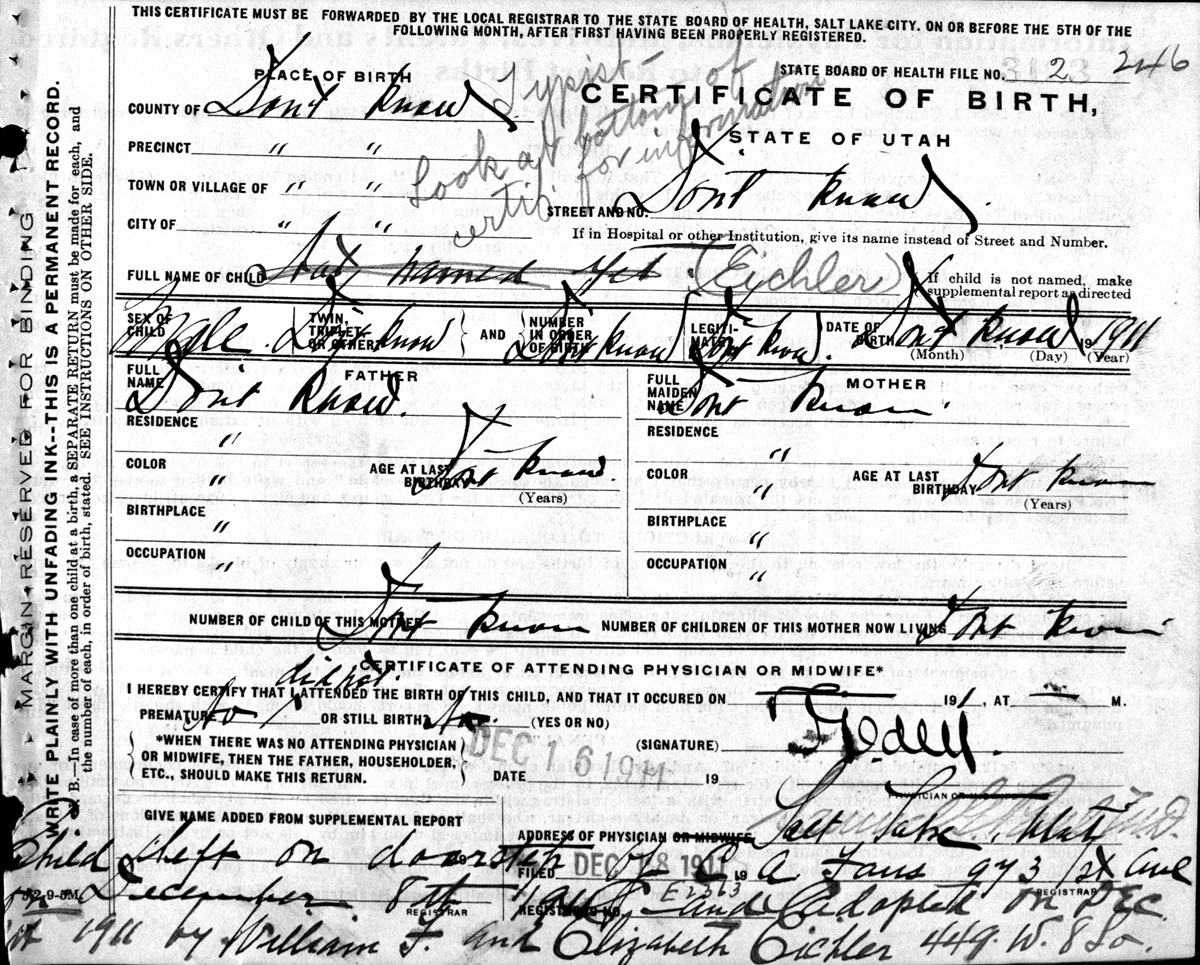 THIS CERTIFICATE MUST BE FORWARDED BY THE LOCAL REGISTRAR TO THE STATE BOARD OF HEALTH, SALT LAKE CITY, ON OR BEFORE THE 5TH OF THE
FOLLOWING MONTH, AFTER FIRST HAVING BEEN PROPERLY REGISTERED.
STATE BOARD OF HEALTH FILE NO. 2 246
PLACE OF BIRTH
CERTIFICATE OF BIRTH,
STATE OF UTAH
Typist
Look at bottom of
certif for information
COUNTY OF Dont Know
PRECINCT " "
TOWN OR VILLAGE OF " "
STREET AND NO. Dont Know
CITY OF " "
If in Hospital or other Institution, give its name instead of Street and Number.
FULL NAME OF CHILD Not named yet (Eichler)
If child is not named, make
supplemental report as directed
SEX OF CHILD Male
TWIN, TRIPLET, OR OTHER? Dont Know
AND NUMBER IN ORDER OF BIRTH Dont Know
LEGITIMATE? Dont Know.
DATE OF BIRTH Dont Know 1911
(Month) (Day) (Year)
FATHER
FULL NAME Dont Know.
RESIDENCE "
COLOR " AGE AT LAST BIRTHDAY Dont Know
(Years)
BIRTHPLACE "
OCCUPATION "
MOTHER
FULL MAIDEN NAME Dont Know.
RESIDENCE "
COLOR " AGE AT LAST BIRTHDAY Dont Know
(Years)
BIRTHPLACE "
OCCUPATION "
NUMBER OF CHILD OF THIS MOTHER Dont Know NUMBER OF CHILDREN OF THIS MOTHER NOW LIVING Dont Know
CERTIFICATE OF ATTENDING PHYSICIAN OR MIDWIFE*
did not
I HEREBY CERTIFY THAT I ATTENDED THE BIRTH OF THIS CHILD, AND THAT IT OCCURED ON 191, AT M.
PREMATURE No OR STILL BIRTH? No. (YES OR NO)
*WHEN THERE WAS NO ATTENDING PHYSICIAN
OR MIDWIFE, THEN THE FATHER, HOUSEHOLDER,
ETC., SHOULD MAKE THIS RETURN.
(SIGNATURE)
DATE DEC 16 1911 19
PHYSICIAN OR MIDWIFE
GIVE NAME ADDED FROM SUPPLEMENTAL REPORT
ADDRESS OF PHYSICIAN OR MIDWIFE Salt Lake, Utah
M.D.
FILED DEC 18 1911 19
E2363
REGISTERED NO.
REGISTRAR
REGISTRAR
Child left on doorstep of 973 1st Ave
December 8th and adopted on Dec
1911 by William F. and Elizabeth Eichler 449. W. 8 So.
MARGIN RESERVED FOR BINDING
WRITE PLAINLY WITH UNFADING INK---THIS IS A PERMANENT RECORD.
N. B.—In case of more than one child at a birth, a SEPARATE RETURN must be made for each, and
the number of each, in order of birth, stated. SEE INSTRUCTIONS ON OTHER SIDE.